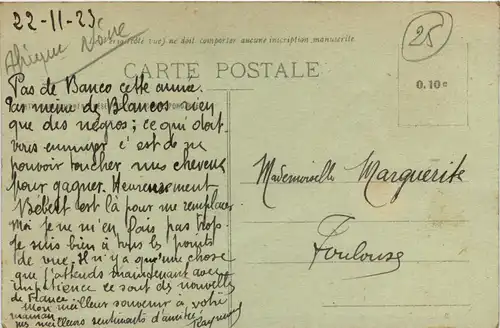 22-11-23
Afrique Noire
propriété vues ne doit comporter aucune inscription manuscrite
25
CARTE POSTALE
0.10c
Pas de Banco cette année.
Pas même de Blancos rien
que des negros; ce qui doit
vous ennuyer c'est de ne
pouvoir toucher mes cheveux
pour gagner. Heureusement
Bébert est là pour me remplacer
Moi je ne m'en fais pas trop
Je suis bien à tous les points
de vue. Il n'y a qu'une chose
que j'attends maintenant avec
impatience ce sont des nouvelles
de France.
Mon meilleur souvenir à votre
maman
mes meilleurs sentiments d'amitié
Raymond
Mademoiselle Marguerite
Toulouse